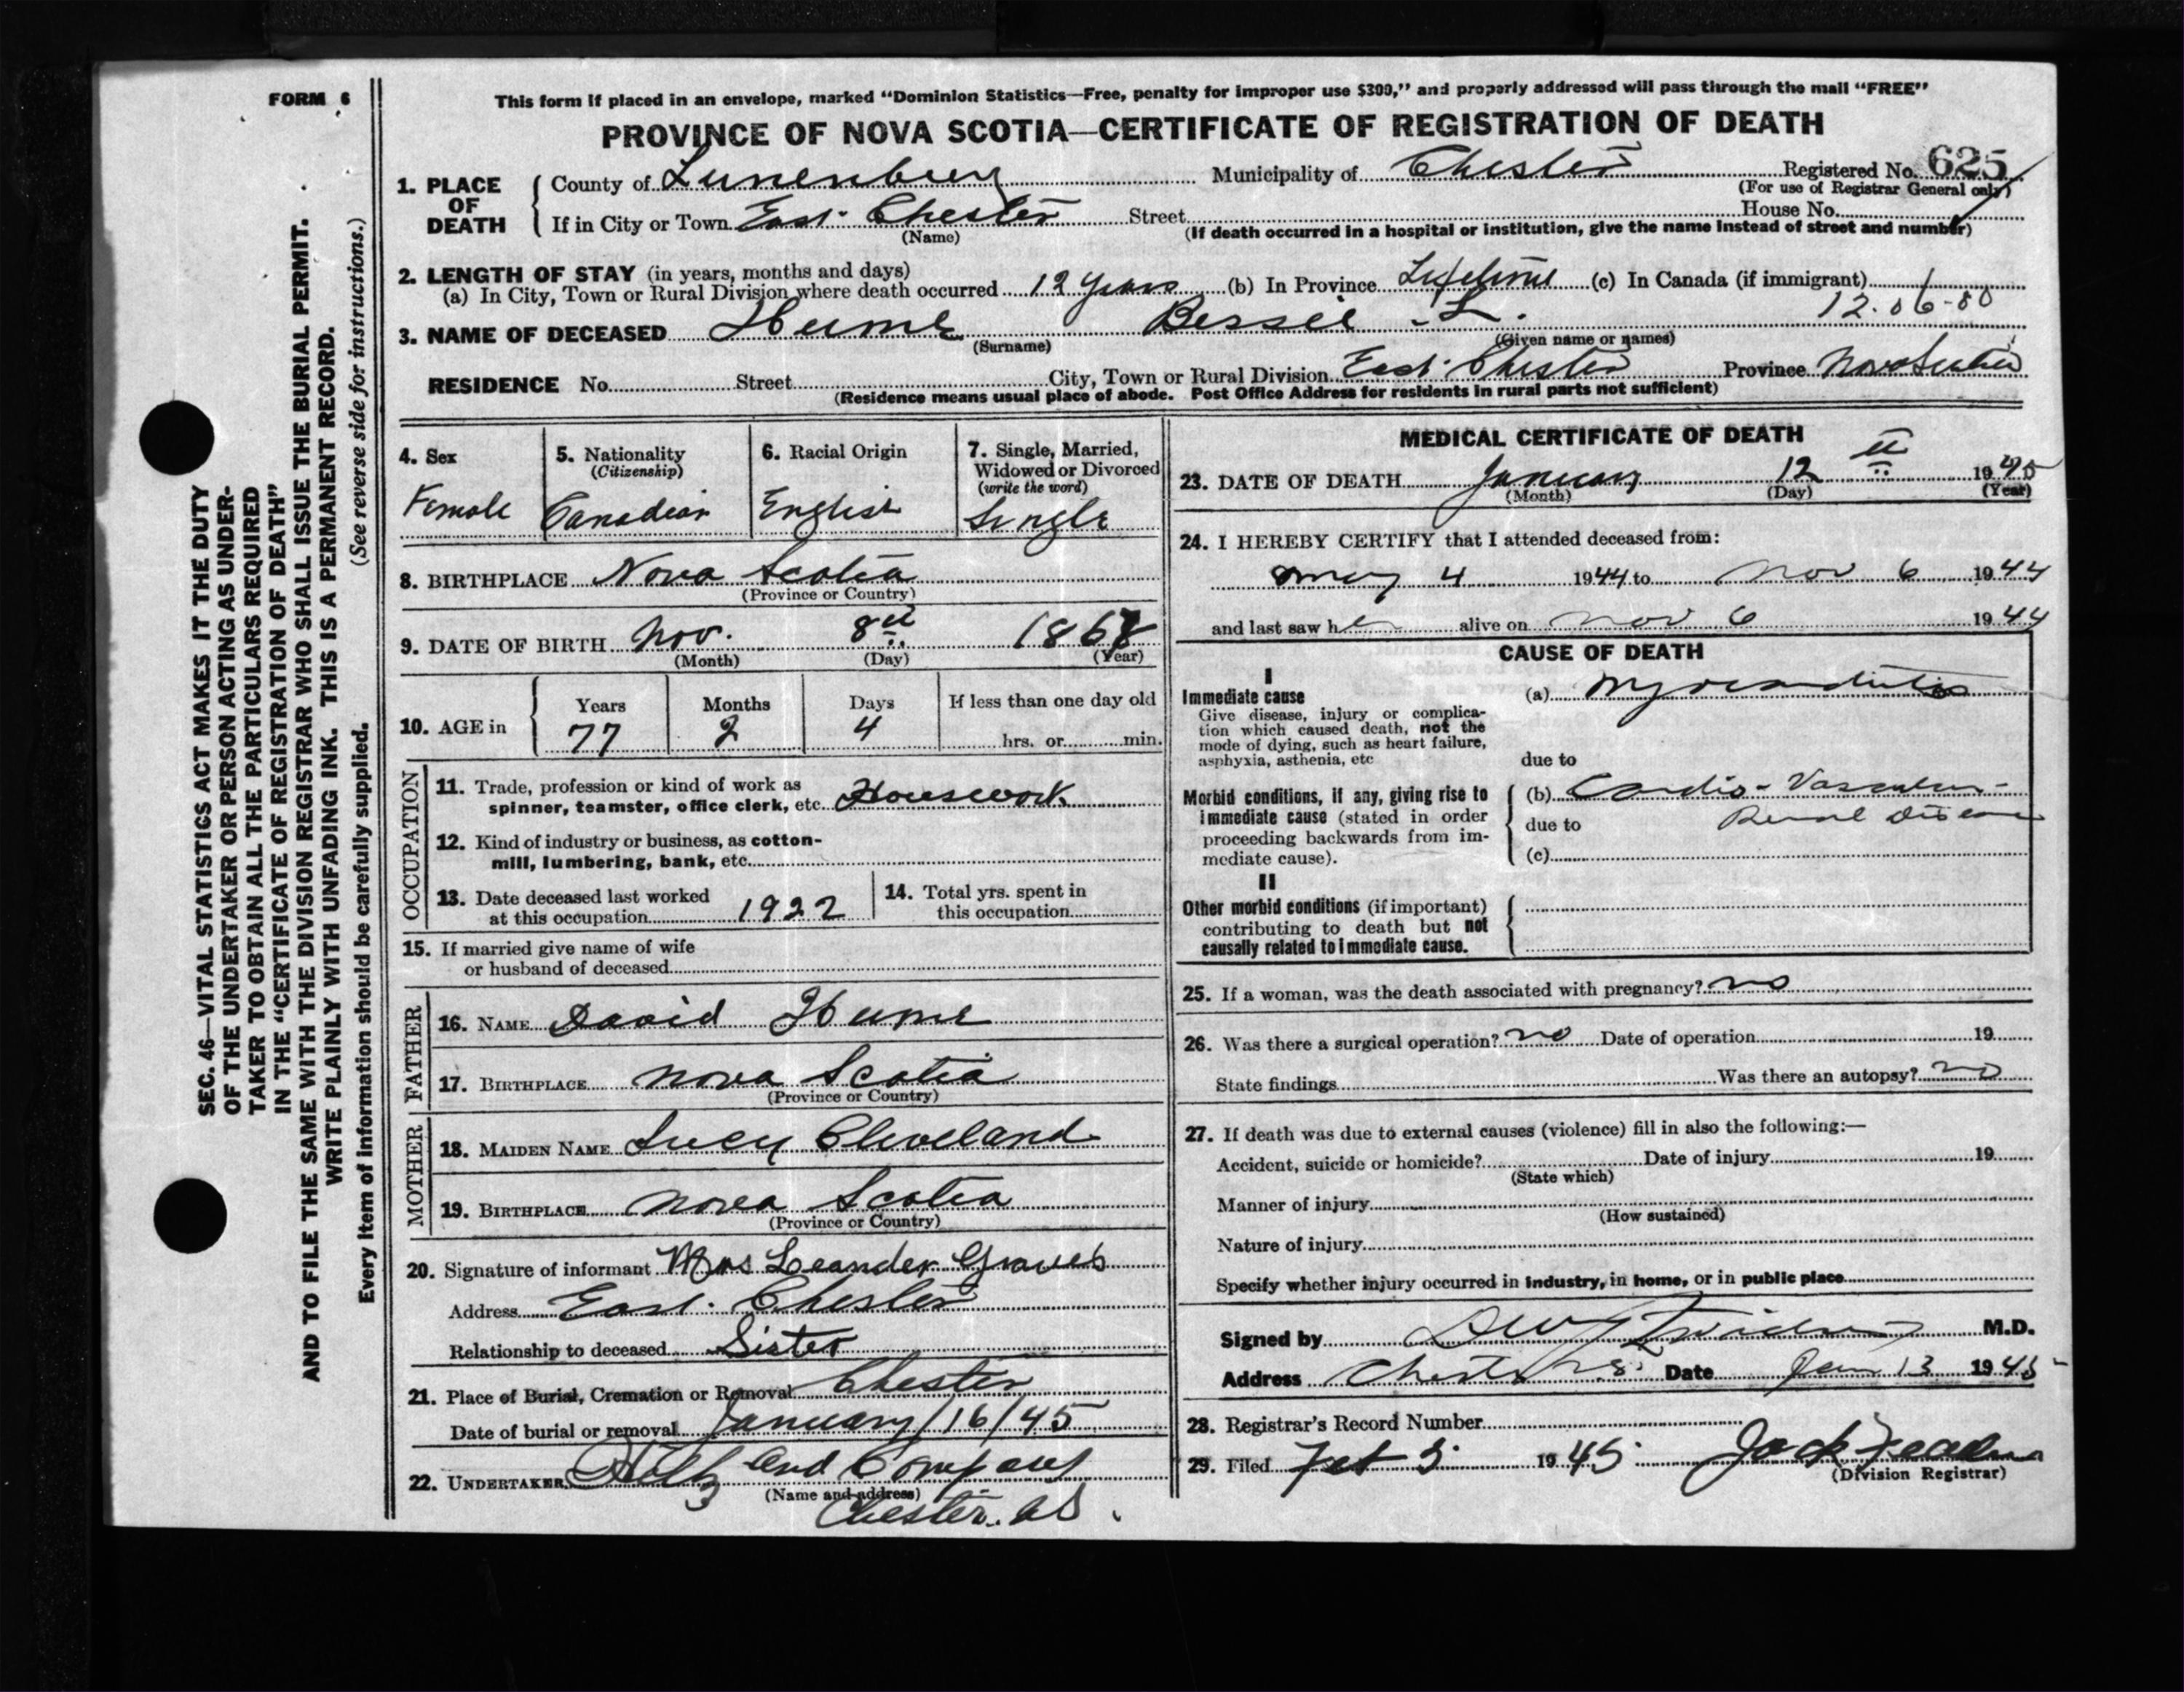 FORM 6
This form if placed in an envelope, marked “Dominion Statistics—Free, penalty for improper use $300,” and properly addressed will pass through the mail “FREE”
PROVINCE OF NOVA SCOTIA—CERTIFICATE OF REGISTRATION OF DEATH
SEC. 46—VITAL STATISTICS ACT MAKES IT THE DUTY
OF THE UNDERTAKER OR PERSON ACTING AS UNDER-
TAKER TO OBTAIN ALL THE PARTICULARS REQUIRED
IN THE “CERTIFICATE OF REGISTRATION OF DEATH”
AND TO FILE THE SAME WITH THE DIVISION REGISTRAR WHO SHALL ISSUE THE BURIAL PERMIT.
WRITE PLAINLY WITH UNFADING INK. THIS IS A PERMANENT RECORD.
Every item of information should be carefully supplied. (See reverse side for instructions.)
1. PLACE OF DEATH
County of Lunenburg Municipality of Chester Registered No. 625
(For use of Registrar General only)
If in City or Town East Chester Street House No.
(Name) (If death occurred in a hospital or institution, give the name instead of street and number)
2. LENGTH OF STAY (in years, months and days)
(a) In City, Town or Rural Division where death occurred 12 years (b) In Province Lifetime (c) In Canada (if immigrant)
12-06-80
3. NAME OF DECEASED Hume Bessie L.
(Surname) (Given name or names)
RESIDENCE No. Street City, Town or Rural Division East Chester Province Nova Scotia
(Residence means usual place of abode. Post Office Address for residents in rural parts not sufficient)
4. Sex
Female
5. Nationality
(Citizenship)
Canadian
6. Racial Origin
English
7. Single, Married,
Widowed or Divorced
(write the word)
Single
8. BIRTHPLACE Nova Scotia
(Province or Country)
9. DATE OF BIRTH Nov. 8th 186
(Month) (Day) (Year)
10. AGE in Years Months Days If less than one day old
77 2 4 hrs. or min.
OCCUPATION
11. Trade, profession or kind of work as
spinner, teamster, office clerk, etc. Housework
12. Kind of industry or business, as cotton-
mill, lumbering, bank, etc.
13. Date deceased last worked
at this occupation 1922
14. Total yrs. spent in
this occupation
15. If married give name of wife
or husband of deceased
FATHER
16. NAME David Hume
17. BIRTHPLACE Nova Scotia
(Province or Country)
MOTHER
18. MAIDEN NAME Lucy Cleveland
19. BIRTHPLACE Nova Scotia
(Province or Country)
20. Signature of informant Mrs Leander Graves
Address East Chester
Relationship to deceased Sister
21. Place of Burial, Cremation or Removal Chester
Date of burial or removal January/16/45
22. UNDERTAKER and Company
(Name and address)
Chester. NS.
MEDICAL CERTIFICATE OF DEATH
23. DATE OF DEATH January 12 th 1945
(Month) (Day) (Year)
24. I HEREBY CERTIFY that I attended deceased from:
May 4 1944 to Nov 6 1944
and last saw her alive on Nov 6 1944
CAUSE OF DEATH
I
Immediate cause
Give disease, injury or complica-
tion which caused death, not the
mode of dying, such as heart failure,
asphyxia, asthenia, etc
(a) Myocarditis
due to
Morbid conditions, if any, giving rise to
immediate cause (stated in order
proceeding backwards from im-
mediate cause).
(b) Cardio-Vascular-
due to Renal Disease
(c)
II
Other morbid conditions (if important)
contributing to death but not
causally related to immediate cause.
25. If a woman, was the death associated with pregnancy? no
26. Was there a surgical operation? no Date of operation 19
State findings Was there an autopsy? no
27. If death was due to external causes (violence) fill in also the following:—
Accident, suicide or homicide? Date of injury 19
(State which)
Manner of injury
(How sustained)
Nature of injury
Specify whether injury occurred in industry, in home, or in public place
Signed by M.D.
Address Chester N.S. Date Jan 13 1945
28. Registrar's Record Number
29. Filed Feb 3 1945. Jack
(Division Registrar)